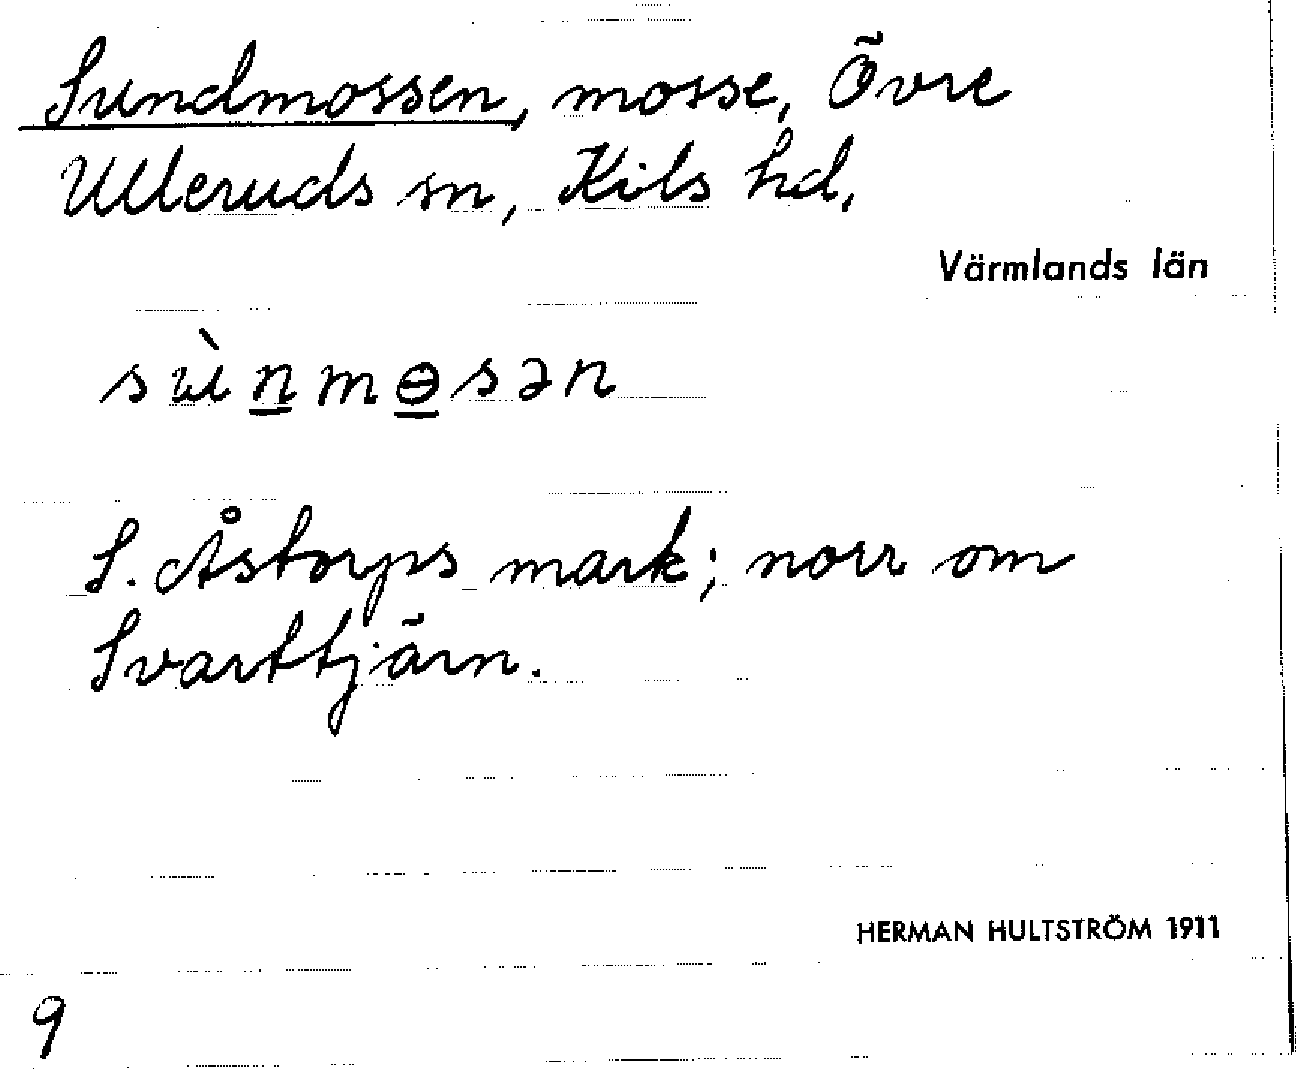 Sundmossen, mosse, Övre
Ulleruds sn, Kils hd,
Värmlands län
sùnmɵsən
S. Åstorps mark; norr om
Svarttjärn.
HERMAN HULTSTRÖM 1911
9